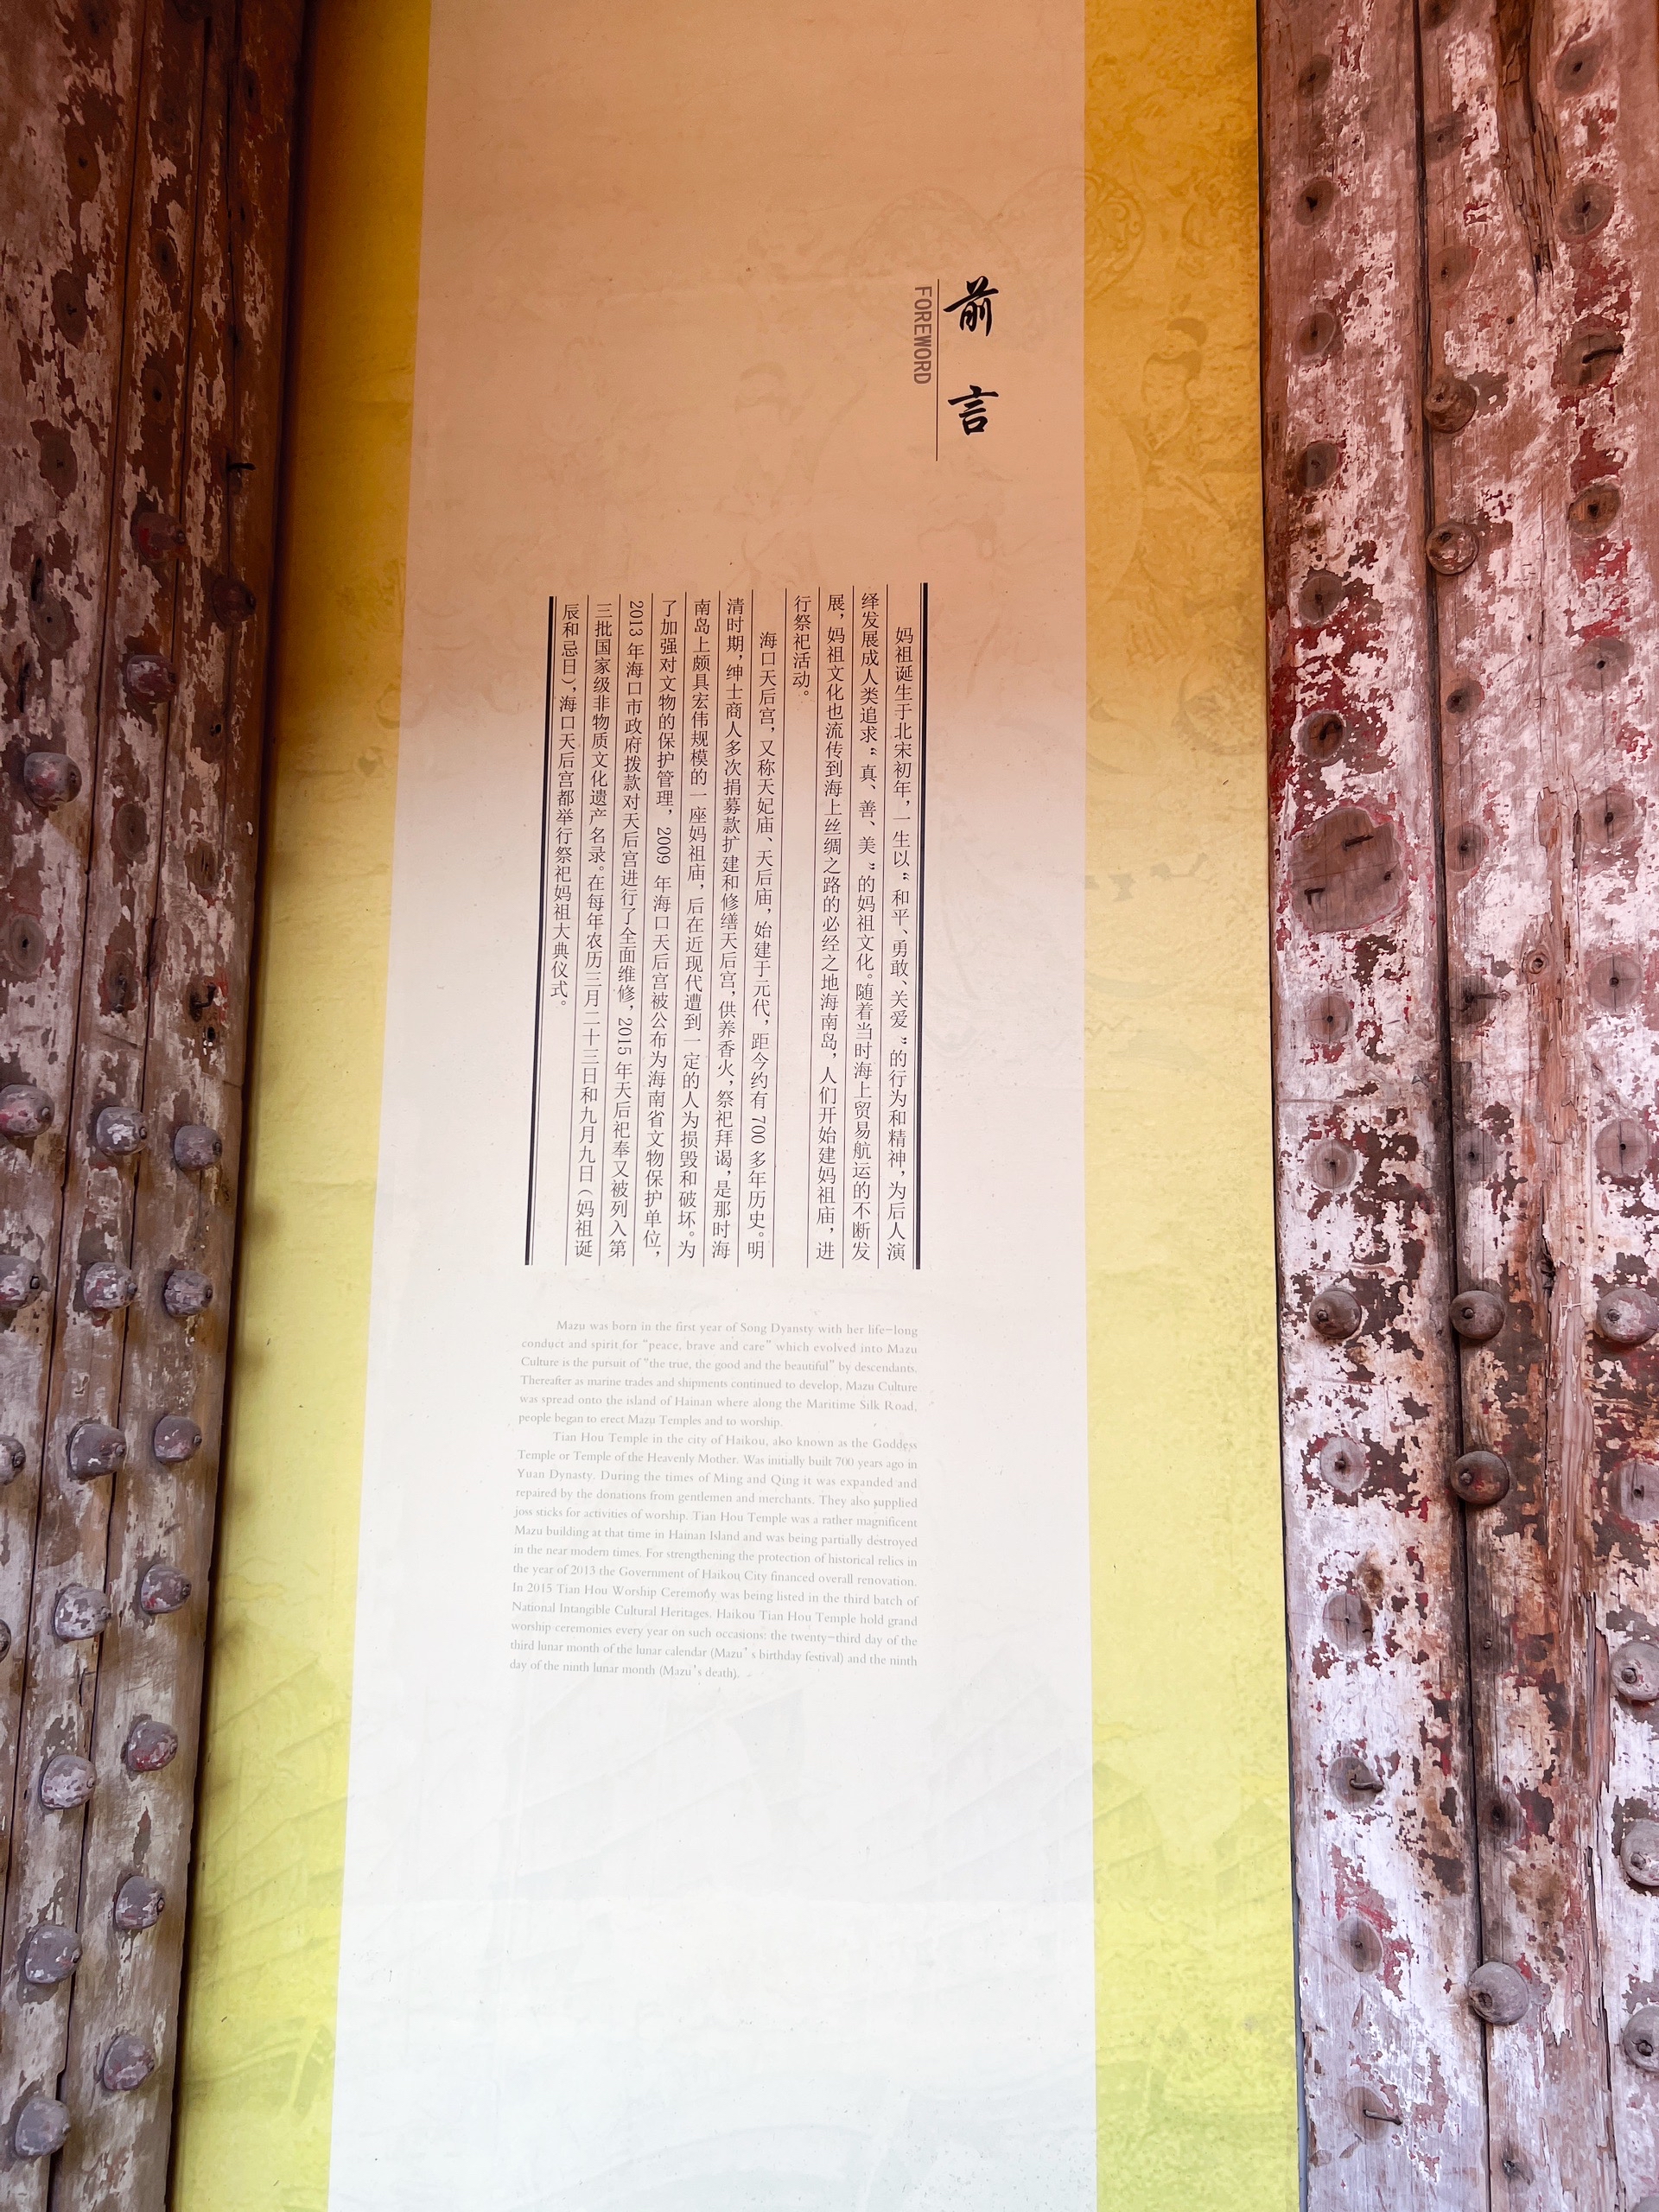 前言
FOREWORD
妈祖诞生于北宋初年，一生以“和平、勇敢、关爱”的行为和精神，为后人演
绎发展成人类追求“真、善、美”的妈祖文化。随着当时海上贸易航运的不断发
展，妈祖文化也流传到海上丝绸之路的必经之地海南岛，人们开始建妈祖庙，进
行祭祀活动。
海口天后宫，又称天妃庙、天后庙，始建于元代，距今约有 700 多年历史。明
清时期，绅士商人多次捐募款扩建和修缮天后宫，供养香火，祭祀拜谒，是那时海
南岛上颇具宏伟规模的一座妈祖庙，后在近现代遭到一定的人为损毁和破坏。为
了加强对文物的保护管理，2009 年海口天后宫被公布为海南省文物保护单位，
2013 年海口市政府拨款对天后宫进行了全面维修，2015 年天后祀奉又被列入第
三批国家级非物质文化遗产名录。在每年农历三月二十三日和九月九日（妈祖诞
辰和忌日），海口天后宫都举行祭祀妈祖大典仪式。
Mazu was born in the first year of Song Dyansty with her life-long
conduct and spirit for "peace, brave and care" which evolved into Mazu
Culture is the pursuit of "the true, the good and the beautiful" by descendants.
Thereafter as marine trades and shipments continued to develop, Mazu Culture
was spread onto the island of Hainan where along the Maritime Silk Road,
people began to erect Mazu Temples and to worship.
Tian Hou Temple in the city of Haikou, also known as the Goddess
Temple or Temple of the Heavenly Mother. Was initially built 700 years ago in
Yuan Dynasty. During the times of Ming and Qing it was expanded and
repaired by the donations from gentlemen and merchants. They also supplied
joss sticks for activities of worship. Tian Hou Temple was a rather magnificent
Mazu building at that time in Hainan Island and was being partially destroyed
in the near modern times. For strengthening the protection of historical relics in
the year of 2013 the Government of Haikou City financed overall renovation.
In 2015 Tian Hou Worship Ceremony was being listed in the third batch of
National Intangible Cultural Heritages. Haikou Tian Hou Temple hold grand
worship ceremonies every year on such occasions: the twenty-third day of the
third lunar month of the lunar calendar (Mazu's birthday festival) and the ninth
day of the ninth lunar month (Mazu's death).